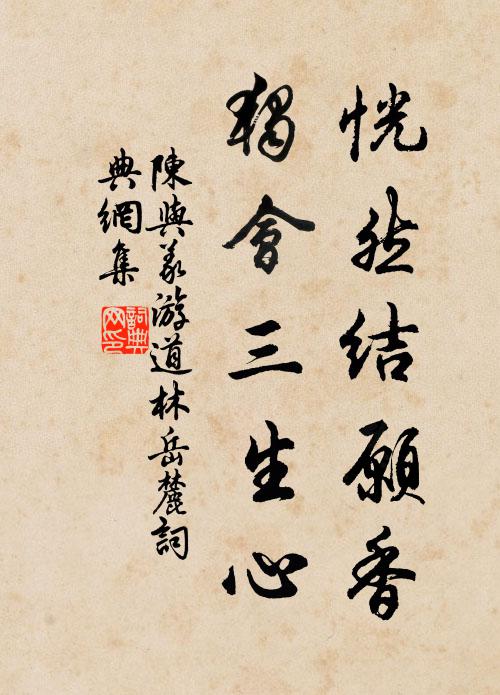 恍然结願香
獨會三生心
陳與義游道林岳麓詞
典網集
詞典网印